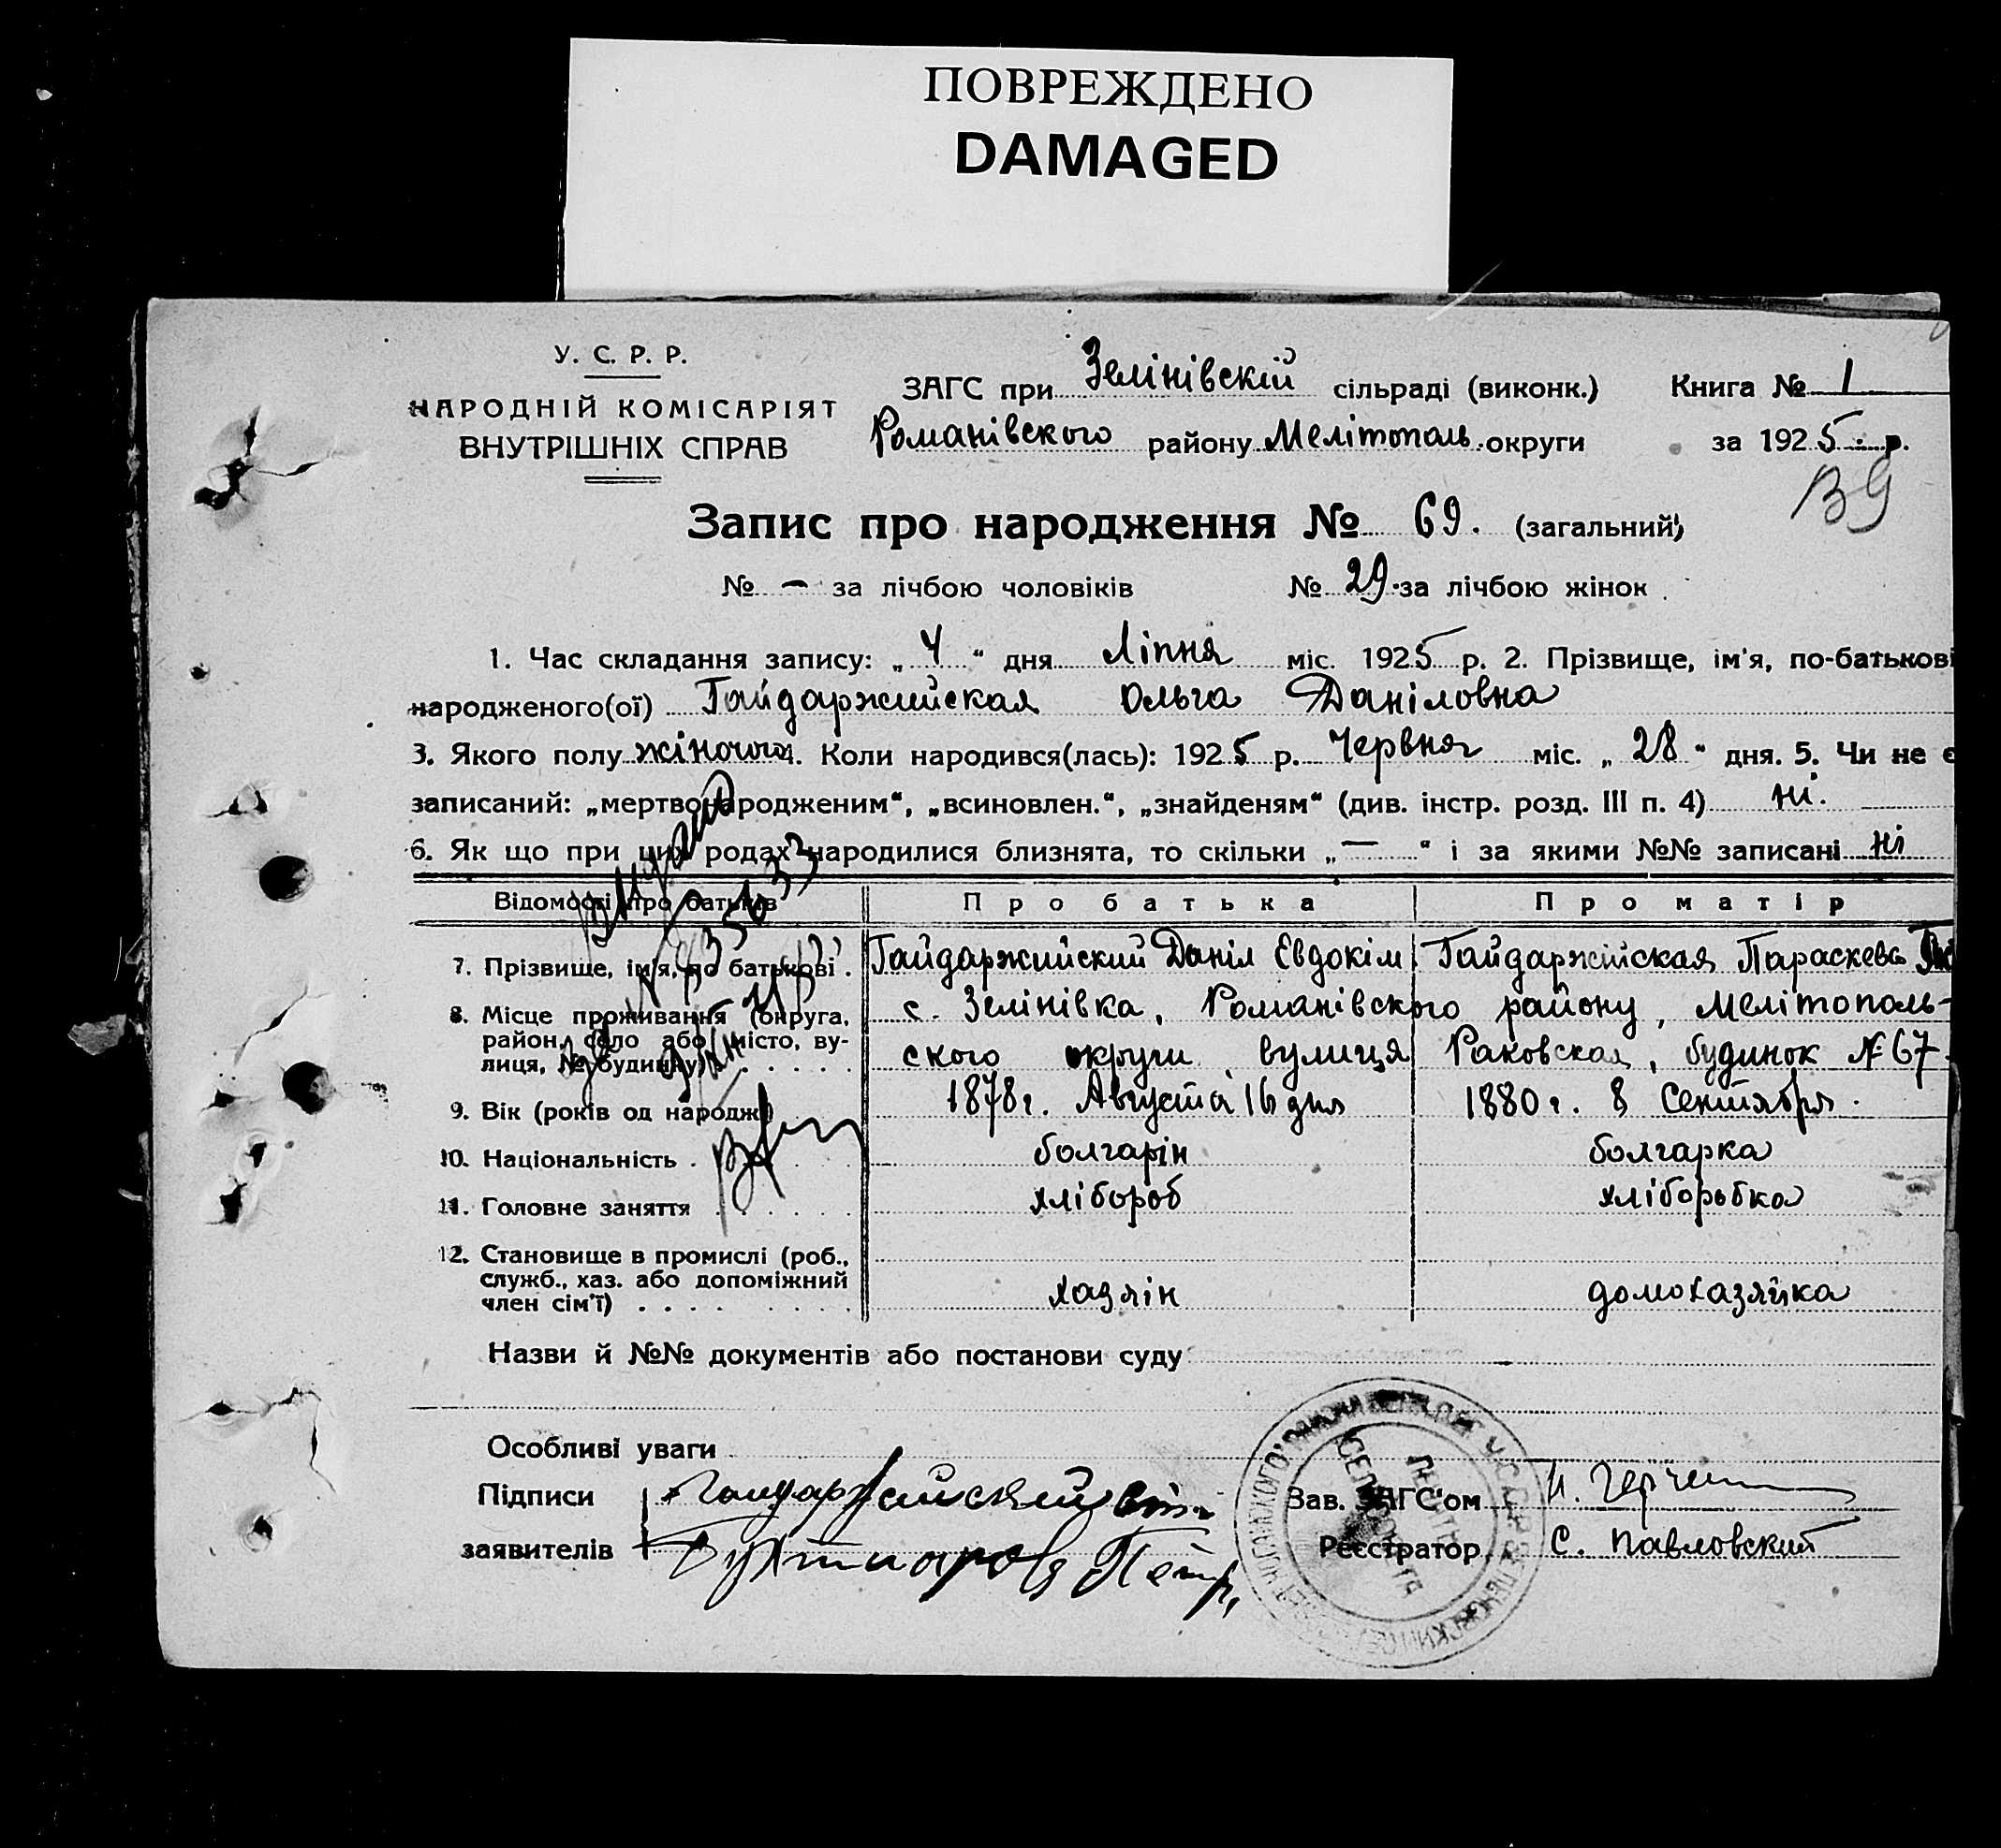 ПОВРЕЖДЕНО
DAMAGED
У. С. Р. Р.
НАРОДНІЙ КОМІСАРІЯТ
ВНУТРІШНІХ СПРАВ
ЗАГС при Зелінівскій сільраді (виконк.) Книга № 1
Романівского району Мелітополь. округи за 1925 р.
Запис про народження № 69. (загальний)
№ — за лічбою чоловіків № 29 за лічбою жінок
1. Час складання запису: „ 4 “ дня Ліпня міс. 1925 р. 2. Прізвище, ім'я, по-батькові
народженого(ої) Гайдаржийская Ольга Даніловна
3. Якого полу жіночого. Коли народився(лась): 1925 р. Червня міс. „ 28 “ дня. 5. Чи не є
записаний: „мертвонародженим“, „всиновлен.“, „знайденям“ (див. інстр. розд. III п. 4) ні.
6. Як що при цих родах народилися близнята, то скільки „ — “ і за якими №№ записані ні
Відомості про батьків Про батька Про матір
7. Прізвище, ім'я, по батькові. Гайдаржийский Даніл Евдокім Гайдаржийская Параскева
8. Місце проживання (округа, район, село або місто, вулиця, № будинку) с. Зелінівка, Романівского району, Мелітополь-
ского округи вулиця Раковская, будинок № 67
9. Вік (років од народж.) 1878 г. Августа 16 дня 1880 г. 8 Сентября.
10. Національність болгарін болгарка
11. Головне заняття хлібороб хліборобка
12. Становище в промислі (роб., служб., хаз. або допоміжний член сім'ї) хазяін домохазяйка
Назви й №№ документів або постанови суду
Особливі уваги
Підписи Гайдаржийский Зав. ЗАГС'ом
заявителів Реєстратор С. Павловский